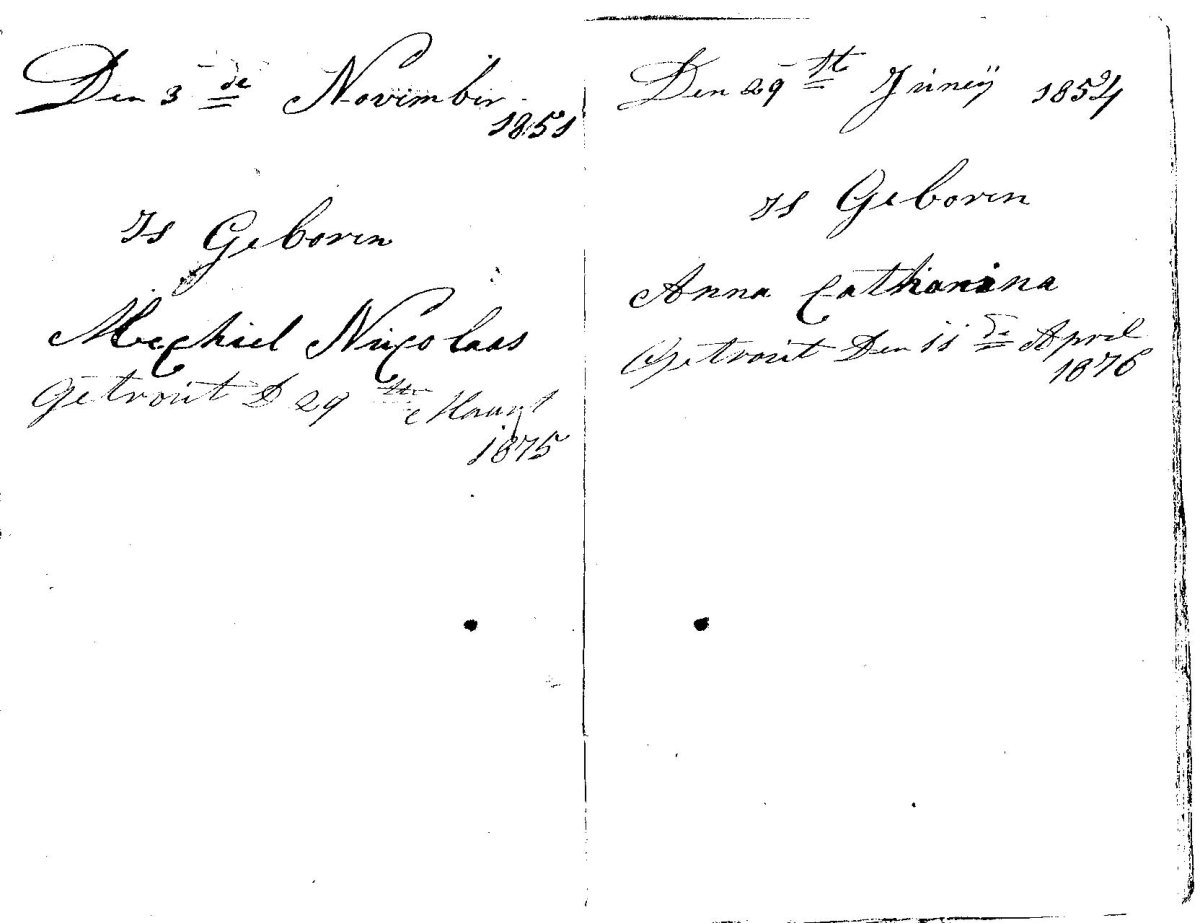 Den 3 de Novimbir
1851
Is Geborin
Mechiel Nicolaas
Getrout D 29 ste Maart
1875
Den 29 st Juneÿ 1854
Is Geborin
Anna Catharina
Getrout Den 11 de April
1876